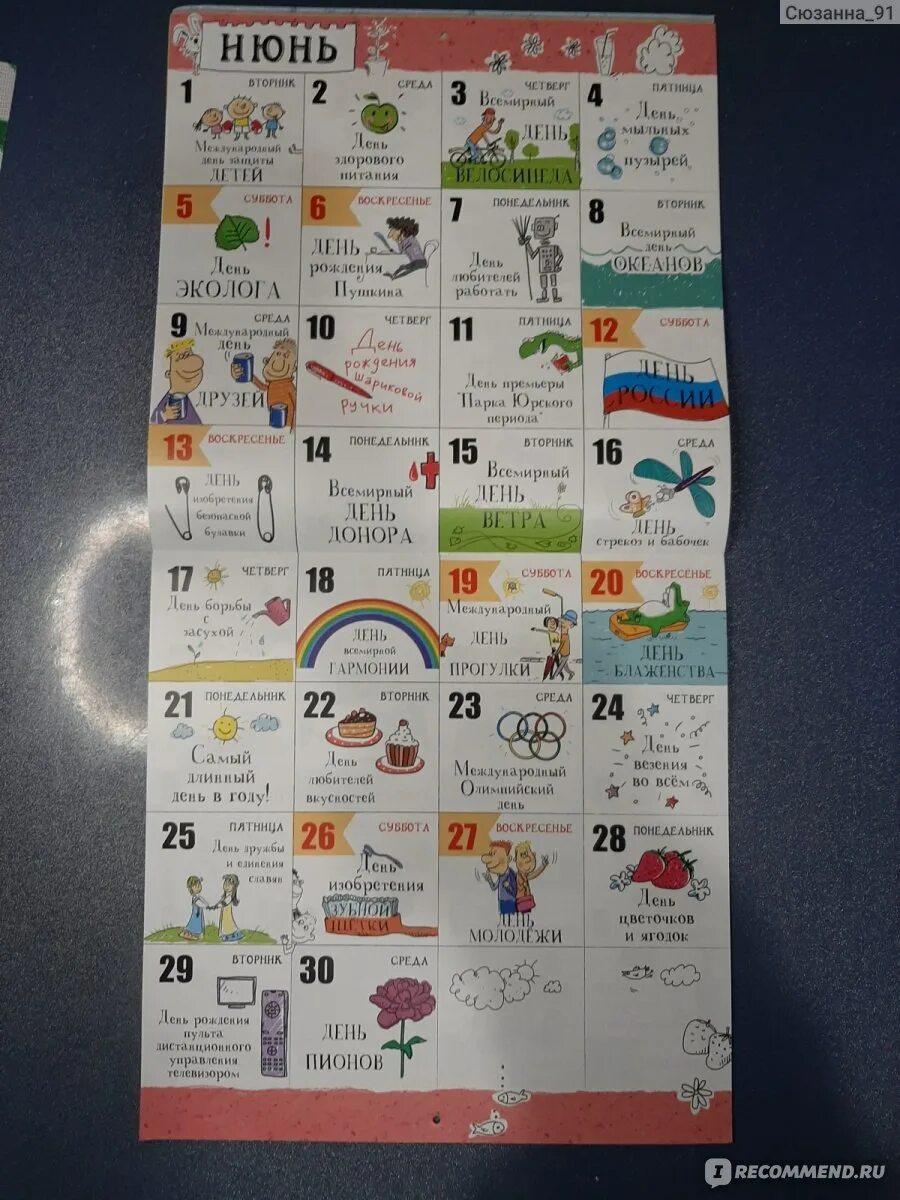 Сюзанна_91
ИЮНЬ
1 ВТОРНИК
Международный
день защиты
ДЕТЕЙ
2 СРЕДА
День
здорового
питания
3 ЧЕТВЕРГ
Всемирный
ДЕНЬ
ВЕЛОСИПЕДА
4 ПЯТНИЦА
День
мыльных
пузырей
5 СУББОТА
День
ЭКОЛОГА
6 ВОСКРЕСЕНЬЕ
ДЕНЬ
рождения
Пушкина
7 ПОНЕДЕЛЬНИК
День
любителей
работать
8 ВТОРНИК
Всемирный
день
ОКЕАНОВ
9 СРЕДА
Международный
день
ДРУЗЕЙ
10 ЧЕТВЕРГ
День
рождения
шариковой
РУЧКИ
11 ПЯТНИЦА
День премьеры
"Парка Юрского
периода"
12 СУББОТА
ДЕНЬ
РОССИИ
13 ВОСКРЕСЕНЬЕ
ДЕНЬ
изобретения
безопасной
булавки
14 ПОНЕДЕЛЬНИК
Всемирный
ДЕНЬ
ДОНОРА
15 ВТОРНИК
Всемирный
ДЕНЬ
ВЕТРА
16 СРЕДА
ДЕНЬ
стрекоз и бабочек
17 ЧЕТВЕРГ
День борьбы
с
засухой
18 ПЯТНИЦА
ДЕНЬ
всемирной
ГАРМОНИИ
19 СУББОТА
Международный
ДЕНЬ
ПРОГУЛКИ
20 ВОСКРЕСЕНЬЕ
ДЕНЬ
БЛАЖЕНСТВА
21 ПОНЕДЕЛЬНИК
Самый
длинный
день в году!
22 ВТОРНИК
День
любителей
вкусностей
23 СРЕДА
Международный
Олимпийский
день
24 ЧЕТВЕРГ
День
везения
во всём
25 ПЯТНИЦА
День дружбы
и единения
славян
26 СУББОТА
День
изобретения
ЗУБНОЙ
ЩЕТКИ
27 ВОСКРЕСЕНЬЕ
ДЕНЬ
МОЛОДЁЖИ
28 ПОНЕДЕЛЬНИК
День
цветочков
и ягодок
29 ВТОРНИК
День рождения
пульта
дистанционного
управления
телевизором
30 СРЕДА
ДЕНЬ
ПИОНОВ
I RECOMMEND.RU